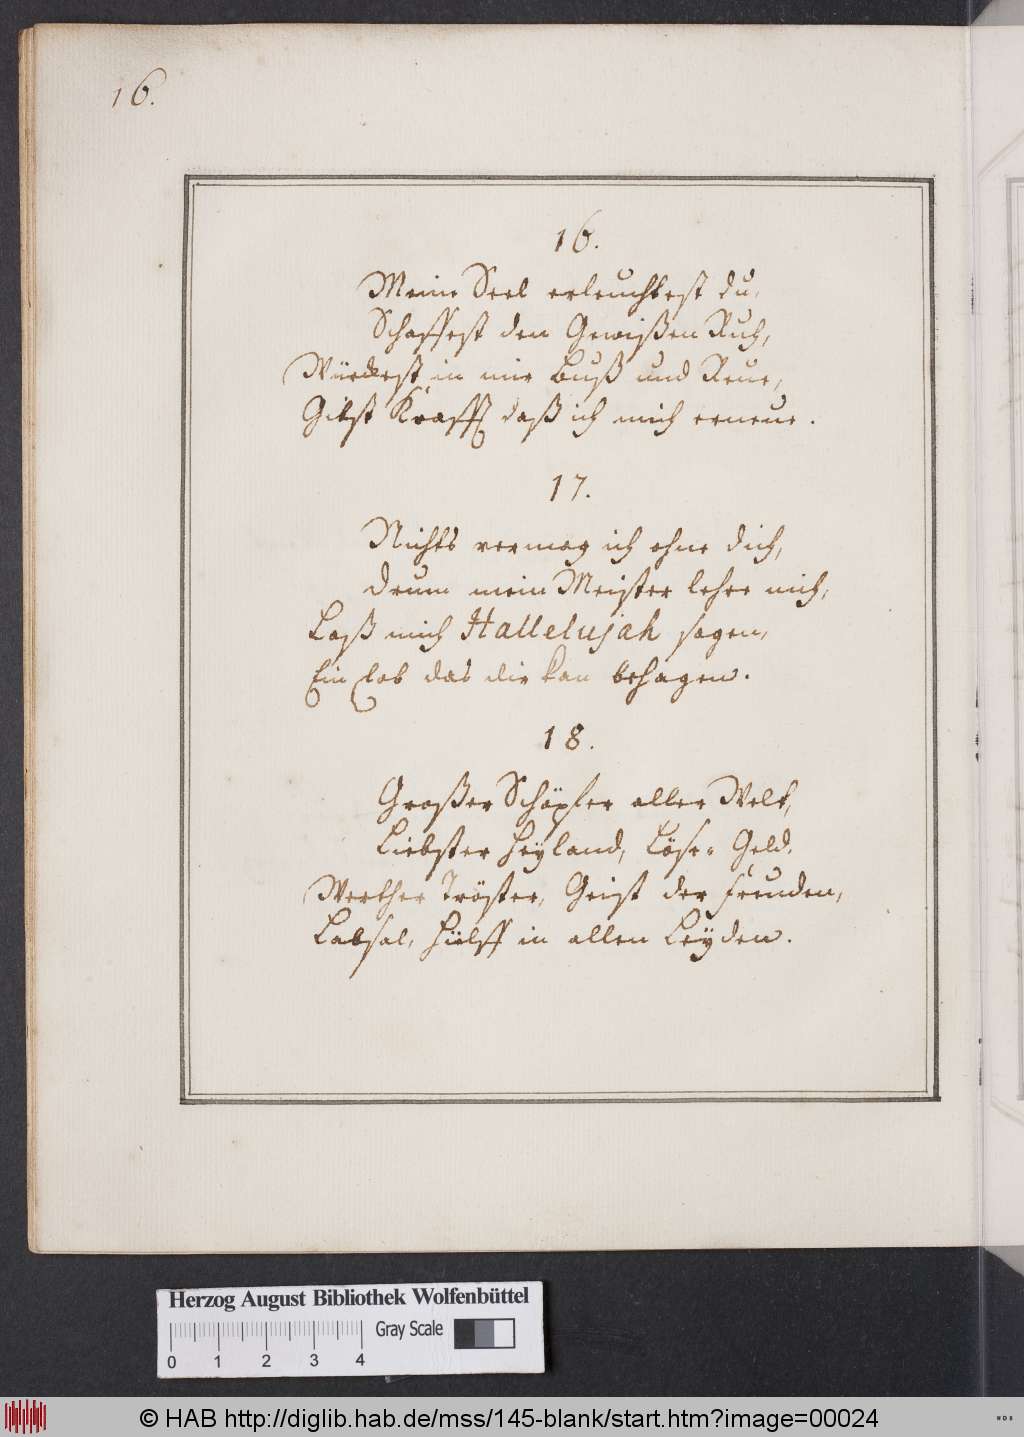 16.
16.
Meine Seel erleuchtest du,
Schaffest den Gewißen Ruh,
Würckest in mir Buß und Reue,
Gibst Krafft daß ich mich erneue.
17.
Nichts vermag ich ohne dich,
drum mein Meister lehre mich,
Laß mich Hallelujah sagen,
Ein Lob das dir kan behagen.
18.
Großer Schöpfer aller Welt,
Liebster Heyland, Löse-Geld,
Werther Tröster, Geist der Freuden,
Labsal, Hülff in allen Leyden.
Herzog August Bibliothek Wolfenbüttel
Gray Scale
0 1 2 3 4
© HAB http://diglib.hab.de/mss/145-blank/start.htm?image=00024